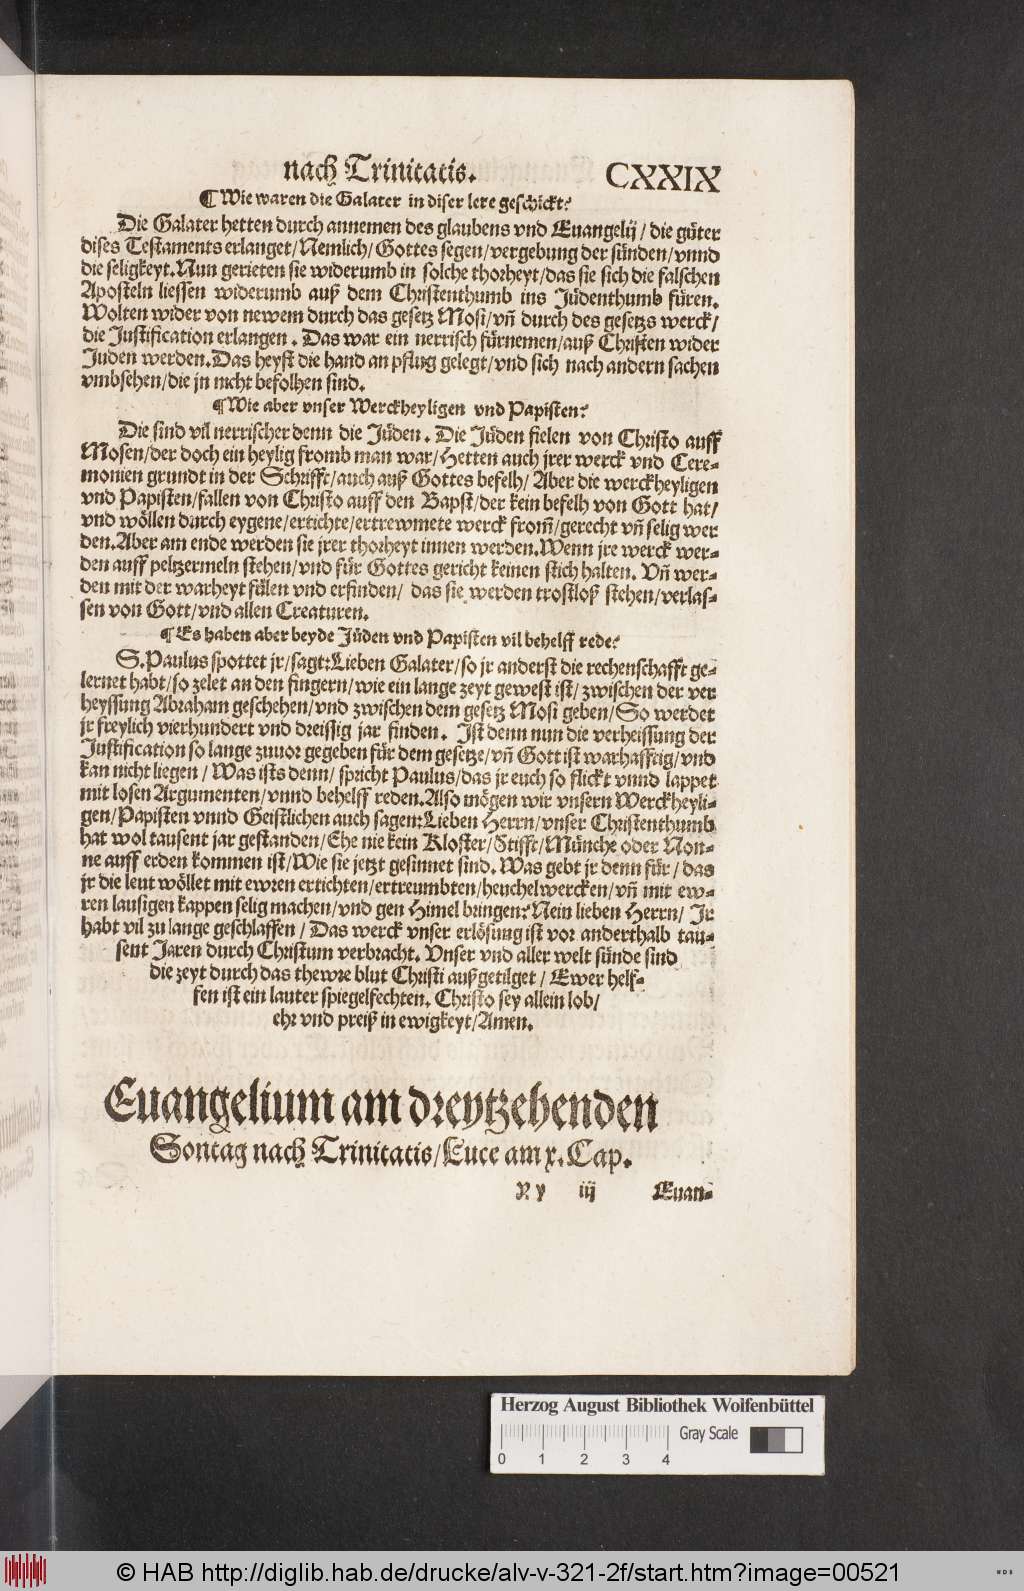 nach Trinitatis. CXXIX
¶ Wie waren die Galater in diser lere geschickt?
Die Galater hetten durch annemen des glaubens vnd Euangelij / die güter
dises Testaments erlanget / Nemlich / Gottes segen / vergebung der sünden / vnnd
die seligkeyt. Nun gerieten sie widerumb in solche thorheyt / das sie sich die falschen
Aposteln liessen widerumb auß dem Christenthumb ins Jüdenthumb füren.
Wolten wider von newem durch das gesetz Mosi / vñ durch des gesetzs werck /
die Justification erlangen. Das war ein nerrisch fürnemen / auß Christen wider
Juden werden. Das heyst die hand an pflug gelegt / vnd sich nach andern sachen
vmbsehen / die jn nicht befolhen sind.
¶ Wie aber vnser Werckheyligen vnd Papisten?
Die sind vil nerrischer denn die Jüden. Die Jüden fielen von Christo auff
Mosen / der doch ein heylig fromb man war / Hetten auch jrer werck vnd Cere-
monien grundt in der Schrifft / auch auß Gottes befelh / Aber die werckheyligen
vnd Papisten / fallen von Christo auff den Bapst / der kein befelh von Gott hat /
vnd wöllen durch eygene / ertichte / ertrewmete werck from̃ / gerecht vñ selig wer
den. Aber am ende werden sie jrer thorheyt innen werden. Wenn jre werck wer-
den auff peltzermeln stehen / vnd für Gottes gericht keinen stich halten. Vñ wer-
den mit der warheyt fülen vnd erfinden / das sie werden trostloß stehen / verlas-
sen von Gott / vnd allen Creaturen.
¶ Es haben aber beyde Jüden vnd Papisten vil behelff rede?
S. Paulus spottet jr / sagt: Lieben Galater / so jr anderst die rechenschafft ge-
lernet habt / so zelet an den fingern / wie ein lange zeyt gewest ist / zwischen der ver
heyssung Abraham geschehen / vnd zwischen dem gesetz Mosi geben / So werdet
jr freylich vierhundert vnd dreissig jar finden. Ist denn nun die verheissung der
Justification so lange zuuor gegeben für dem gesetze / vñ Gott ist warhafftig / vnd
kan nicht liegen / Was ists denn / spricht Paulus / das jr euch so flickt vnnd lappet
mit losen Argumenten / vnnd behelff reden. Also mögen wir vnsern Werckheyli-
gen / Papisten vnnd Geistlichen auch sagen: Lieben Herrn / vnser Christenthumb
hat wol tausent jar gestanden / Ehe nie kein Kloster / Stifft / Münche oder Non-
ne auff erden kommen ist / Wie sie jetzt gesinnet sind. Was gebt jr denn für / das
jr die leut wöllet mit ewren ertichten / ertreumbten / heuchelwercken / vñ mit ew-
ren lausigen kappen selig machen / vnd gen Himel bringen? Nein lieben Herrn / Jr
habt vil zu lange geschlaffen / Das werck vnser erlösung ist vor anderthalb tau-
sent Jaren durch Christum verbracht. Vnser vnd aller welt sünde sind
die zeyt durch das thewre blut Christi außgetilget / Ewer helf-
fen ist ein lauter spiegelfechten. Christo sey allein lob /
ehr vnd preiß in ewigkeyt / Amen.
Euangelium am dreytzehenden
Sontag nach Trinitatis / Luce am x. Cap.
Y y iij Euan-
Herzog August Bibliothek Wolfenbüttel
Gray Scale
0 1 2 3 4
© HAB http://diglib.hab.de/drucke/alv-v-321-2f/start.htm?image=00521